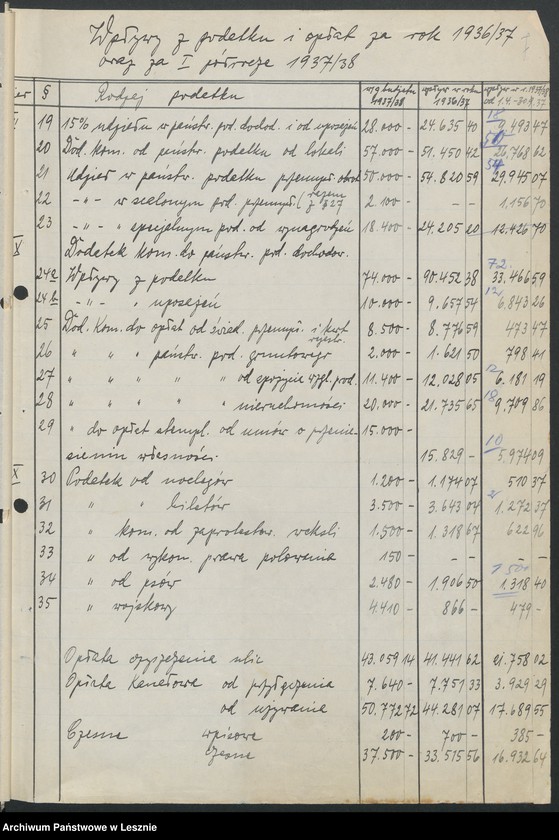 Wpływy z podatku i opłat za rok 1936/37
oraz za I półrocze 1937/38
§ Rodzaj podatku wg budżetu 1937/38 wpływ w roku 1936/37 wpływ w r. 1937/38 od 1.4.
19 15% udziału w państw. pod. dochod. i od uposażeń 28.000 - 24.635 40 493 47
20 Dod. kom. od państw. podatku od lokali 57.000 - 51.450 42 26.768 62
21 Udział w państw. podatku przemysł. obrot. 50.000 - 54.820 59 29.945 07
22 -"- -"- w scalonym pod. przemysł. (razem z § 27 2.100 - - - 1.156 70
23 -"- -"- specjalnym pod. od wynagrodzeń 18.400 - 24.205 20 12.426 70
X Dodatek kom. do państw. pod. dochodow.
24a Wpływy z podatku 74.000 - 90.452 38 33.466 59
24b -"- -"- " uposażeń 10.000 - 9.657 54 6.843 26
25 Dod. Kom. do opłat od świad. przemysł. i kart rejestr. 8.500 - 8.776 59 473 47
26 " " " państw. pod. gruntowego 2.000 - 1.621 50 798 41
27 " " " " " od spożycia wzgl. prod. 11.400 - 12.028 05 6.181 19
28 " " " " " nieruchomości 20.000 - 21.735 65 9.709 86
29 " do opłat stempl. od umów o przenie- 15.000 -
sieniu własności 15.829 - 5.974 09
X 30 Podatek od noclegów 1.200 - 1.174 07 510 37
31 " " biletów 3.500 - 3.643 04 1.272 37
32 " kom. od zaprotestow. weksli 1.500 - 1.318 67 622 96
33 " od wykon. prawa polowania 150 - - - - -
34 " od psów 2.480 - 1.906 50 1.318 40
35 " wojskowy 4.410 - 866 - 479 -
Opłata czyszczenia ulic 43.059 14 41.441 62 21.758 02
Opłata Kanałowa od przyłączenia 7.640 - 7.751 33 3.929 29
od używania 50.772 72 44.281 07 17.689 55
Czesne wpisowe 200 - 700 - 385 -
czesne 37.500 - 33.515 56 16.932 64
Archiwum Państwowe w Lesznie